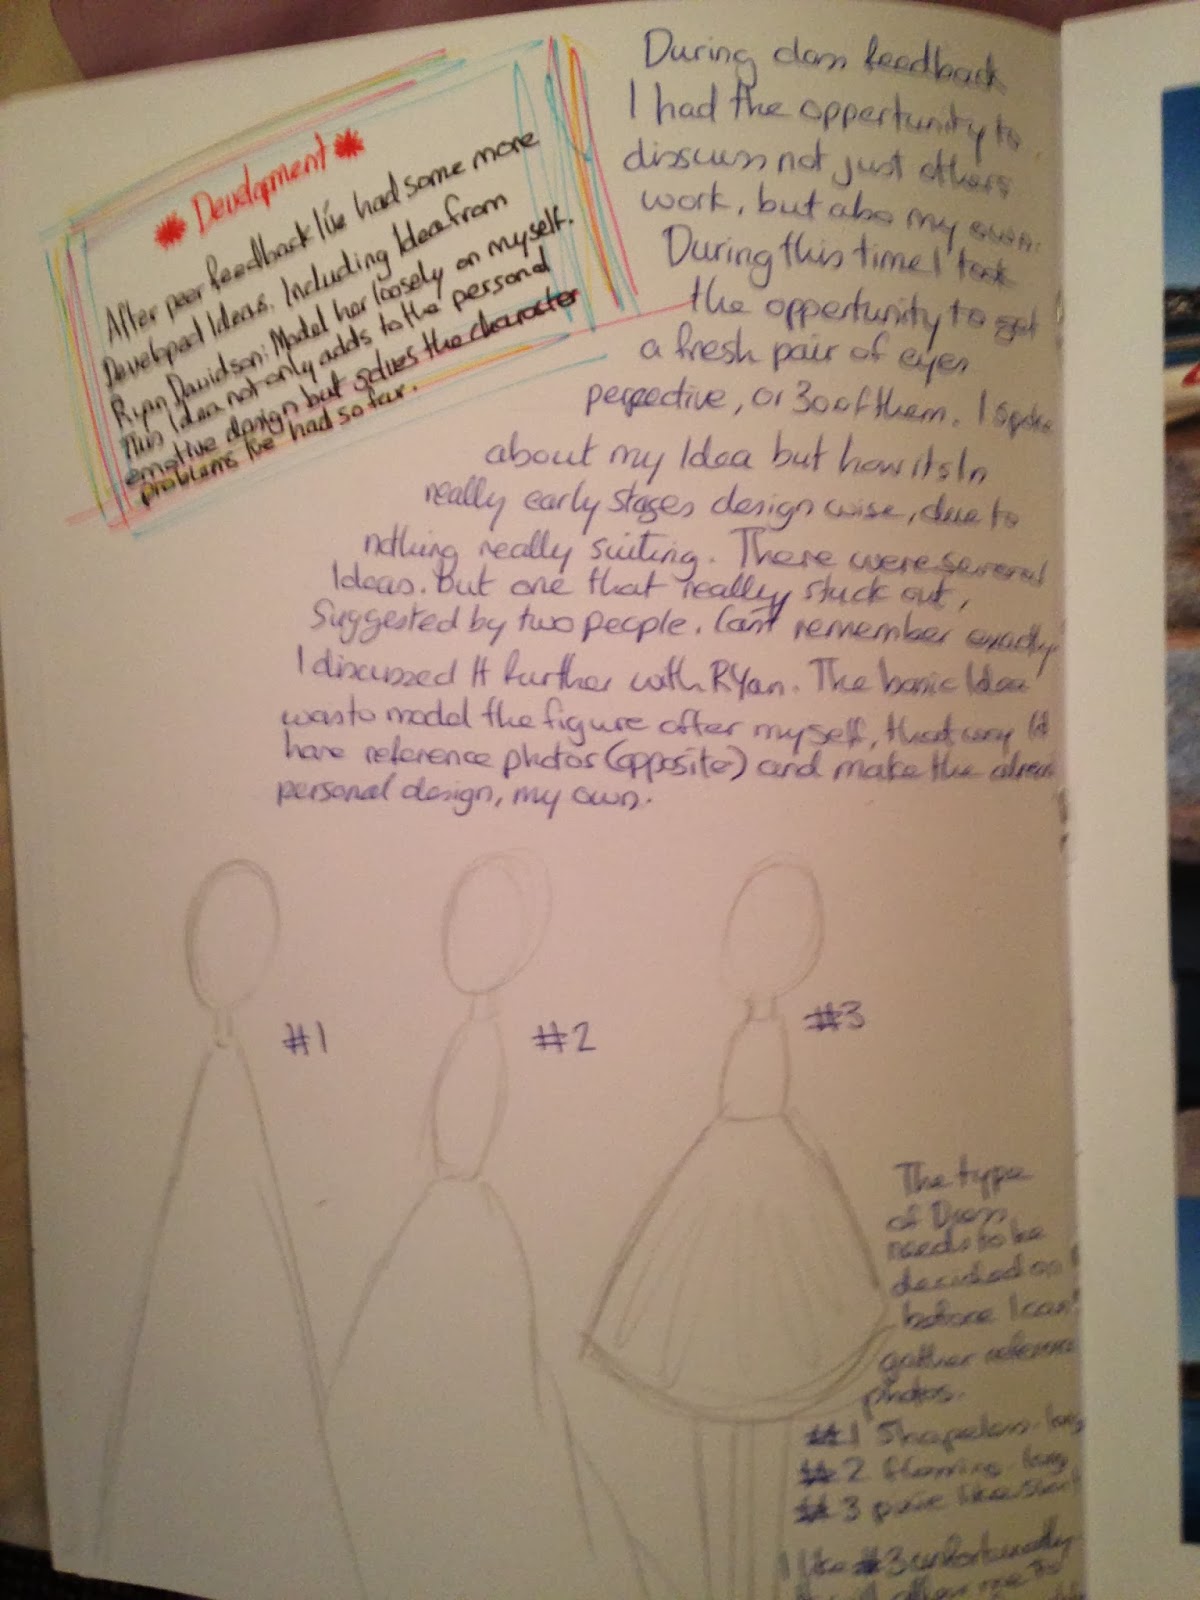 Development
After peer feedback I've had some more
Developed Ideas. Including Idea from
Ryan Davidson: Model her loosely on myself.
This Idea not only adds to the personal
emotive design but solves the character
problems I've had so far.
During class feedback
I had the oppertunity to
discuss not just others
work, but also my own.
During this time I took
the opportunity to get
a fresh pair of eyes
perspective, or 30 of them. I spoke
about my Idea but how its In
really early stages design wise, due to
nothing really suiting. There were several
Ideas. But one that really stuck out,
Suggested by two people. Can't remember exactly
I discussed It further with RYan. The basic Idea
was to model the figure after myself, that way I'd
have reference photos (opposite) and make the
personal design, my own.
#1
#2
#3
The type
of Dress
needs to be
decided on
before I can
gather reference
photos.
#1 Shapeless long
#2 flowing long
#3 pixie like short
I like #3 unfortunately
me to